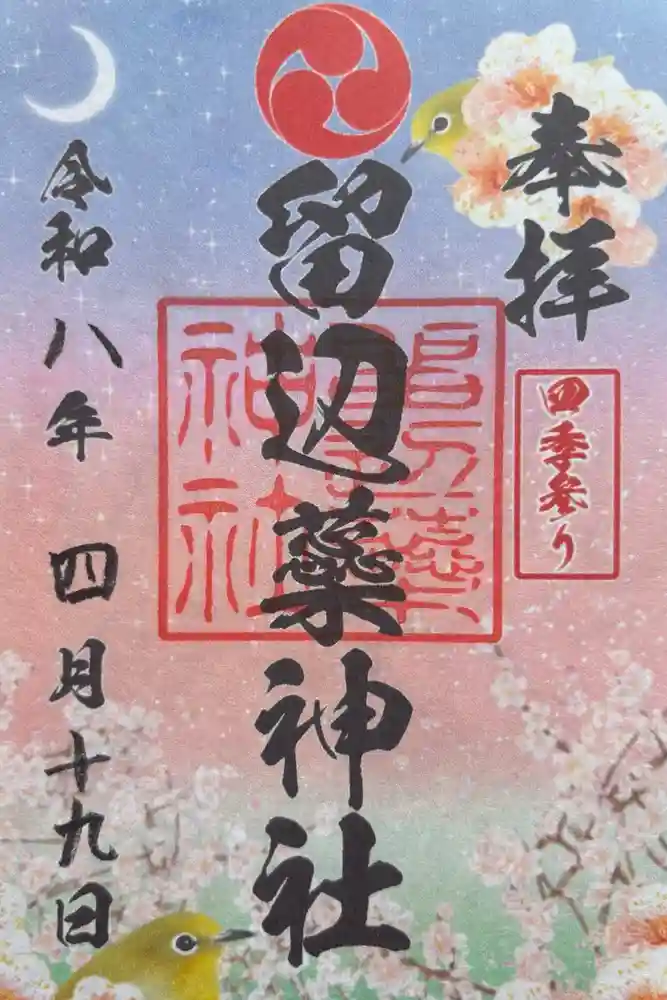 奉拝
四季参り
留辺蘂神社
留辺蘂神社
令和八年 四月十九日